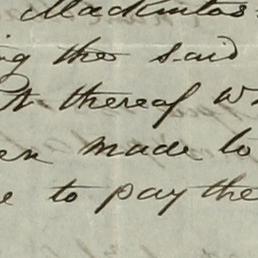 Mackintos
ing the said
t thereof w
en made to
e to pay the